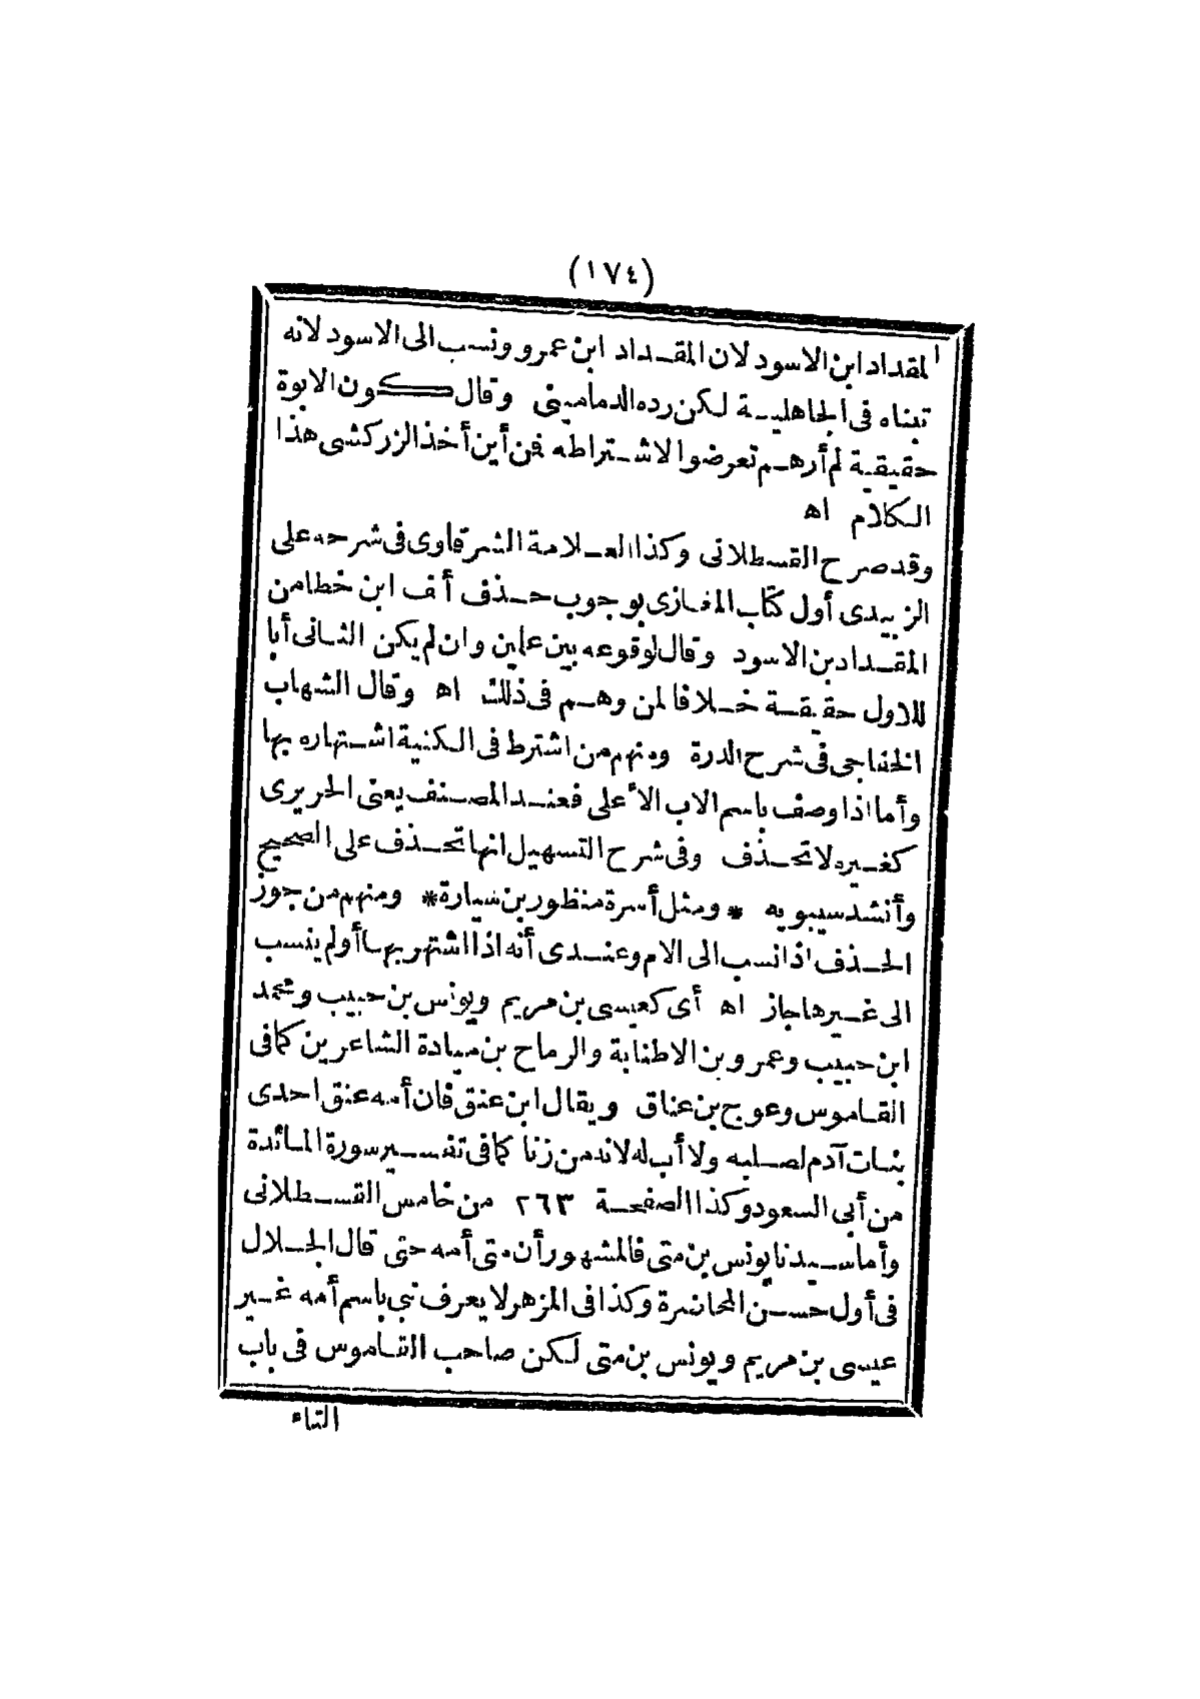 (١٧٤)
المقداد ابن الاسود لان المقداد ابن عمرو ونسب الى الاسود لانه
تبناه فى الجاهلية لكن رده الدمامينى وقال كون الابوة
حقيقية لم أرهم تعرضوا لاشتراطه فمن أين أخذ الزركشى هذا
الكلام اه
وقد صرح القسطلانى وكذا العلامة الشرقاوى فى شرحه على
الزبيدى أول كتاب المغازى بوجوب حذف ألف ابن خطا من
المقداد بن الاسود وقال لوقوعه بين علمين وان لم يكن الثانى أبا
للاول حقيقة خلافا لمن وهم فى ذلك اه وقال الشهاب
الخفاجى فى شرح الدرة ومنهم من اشترط فى الكنية اشتهاره بها
وأما اذا وصف باسم الاب الأعلى فعند المصنف يعنى الحريرى
كغيره لا تحذف وفى شرح التسهيل انها تحذف على الصحيح
وأنشد سيبويه * ومثل أسرة منظور بن سيارة * ومنهم من جوز
الحذف اذا نسب الى الام وعندى أنه اذا اشتهر بها أو لم ينسب
الى غيرها جاز اه أى كعيسى بن مريم ويونس بن حبيب ومحمد
ابن حبيب وعمرو بن الاطنابة والرماح بن ميادة الشاعرين كما فى
القاموس وعوج بن عناق ويقال ابن عنق فان أمه عنق احدى
بنات آدم لصلبه ولا أب له لانه من زنا كما فى تفسير سورة المائدة
من أبى السعود وكذا الصفحة ٢٦٣ من خامس القسطلانى
وأما سيدنا يونس بن متى فالمشهور أن متى أمه حتى قال الجلال
فى أول حسن المحاضرة وكذا فى المزهر لا يعرف نبى باسم أمه غير
عيسى بن مريم ويونس بن متى لكن صاحب القاموس فى باب
التاء